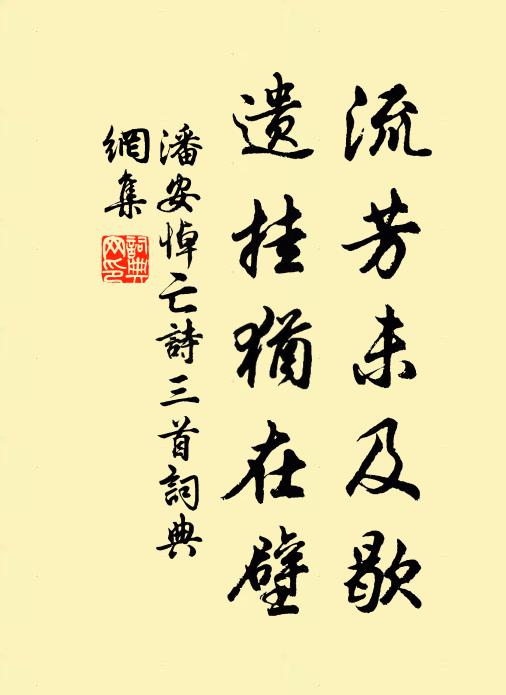 流芳未及歇
遗挂猶在壁
潘安悼亡詩三首詞典
網集
詞典網印